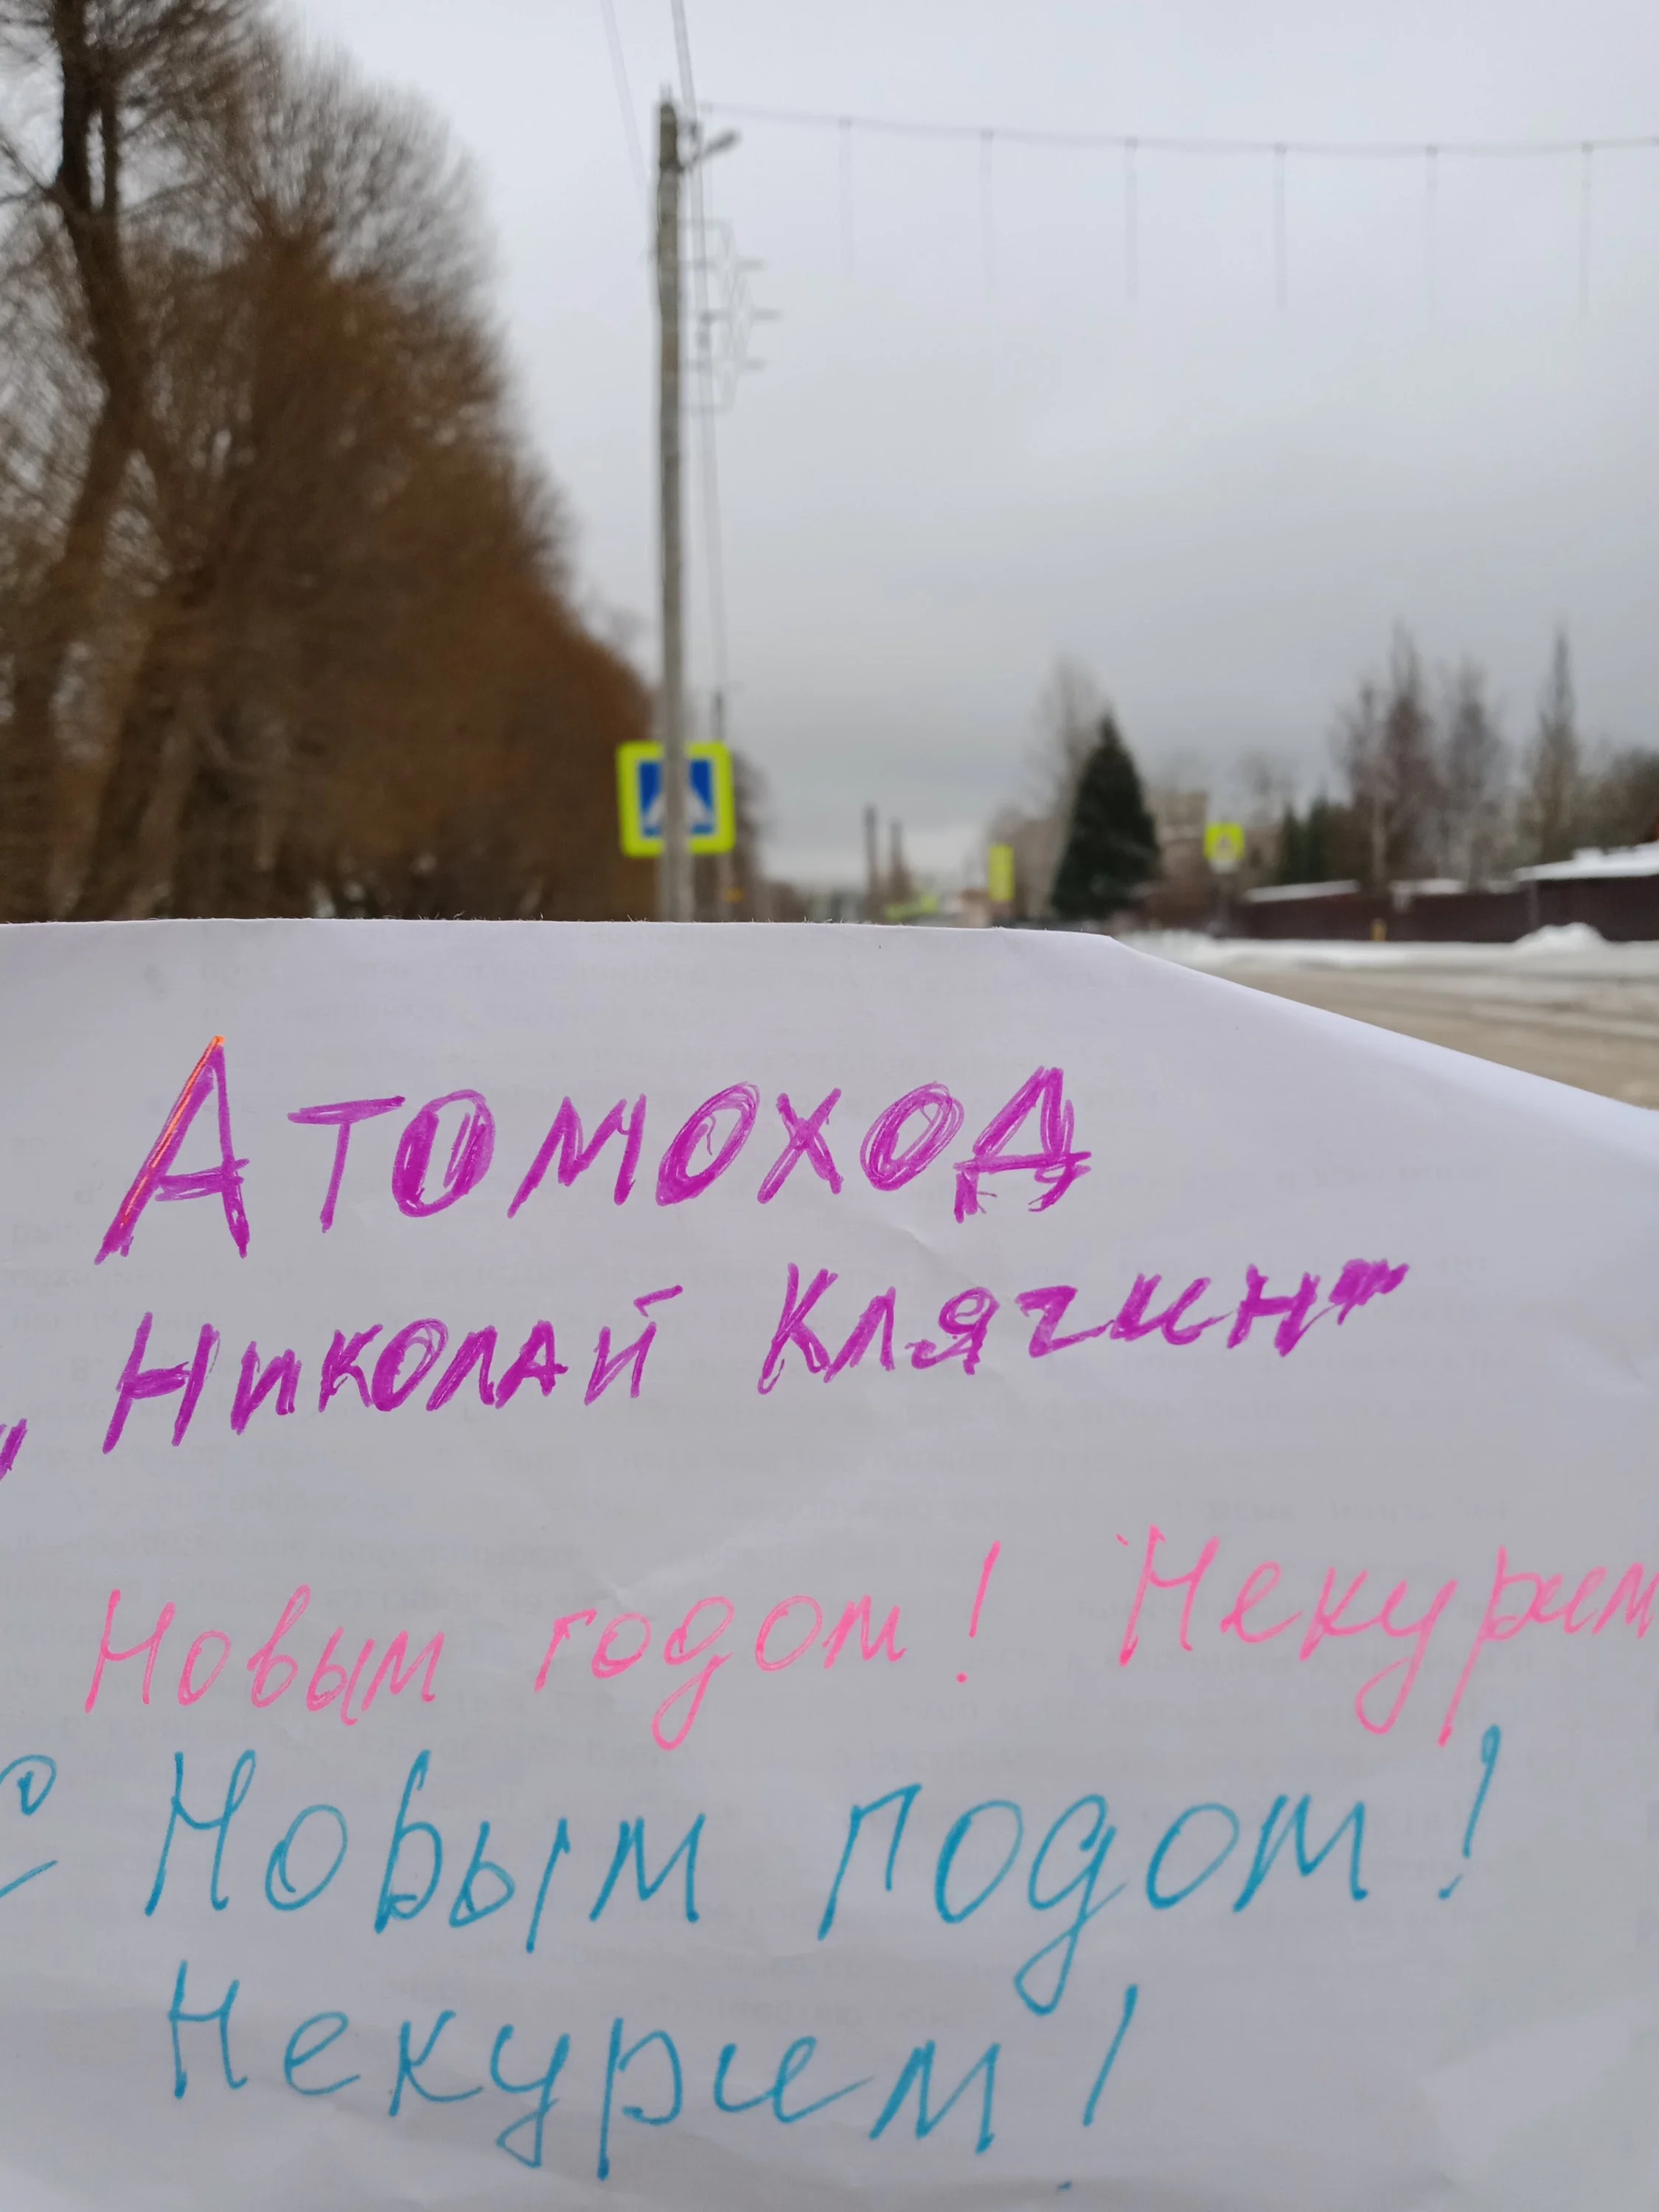 Атомоход
„Николай Клягин"
Новым годом! Некурим
С Новым годом!
Некурим!